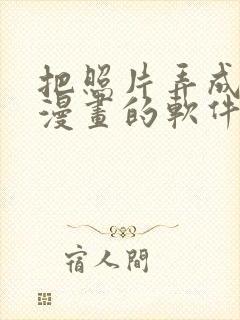 把照片弄成
漫畫的軟件
宿人間